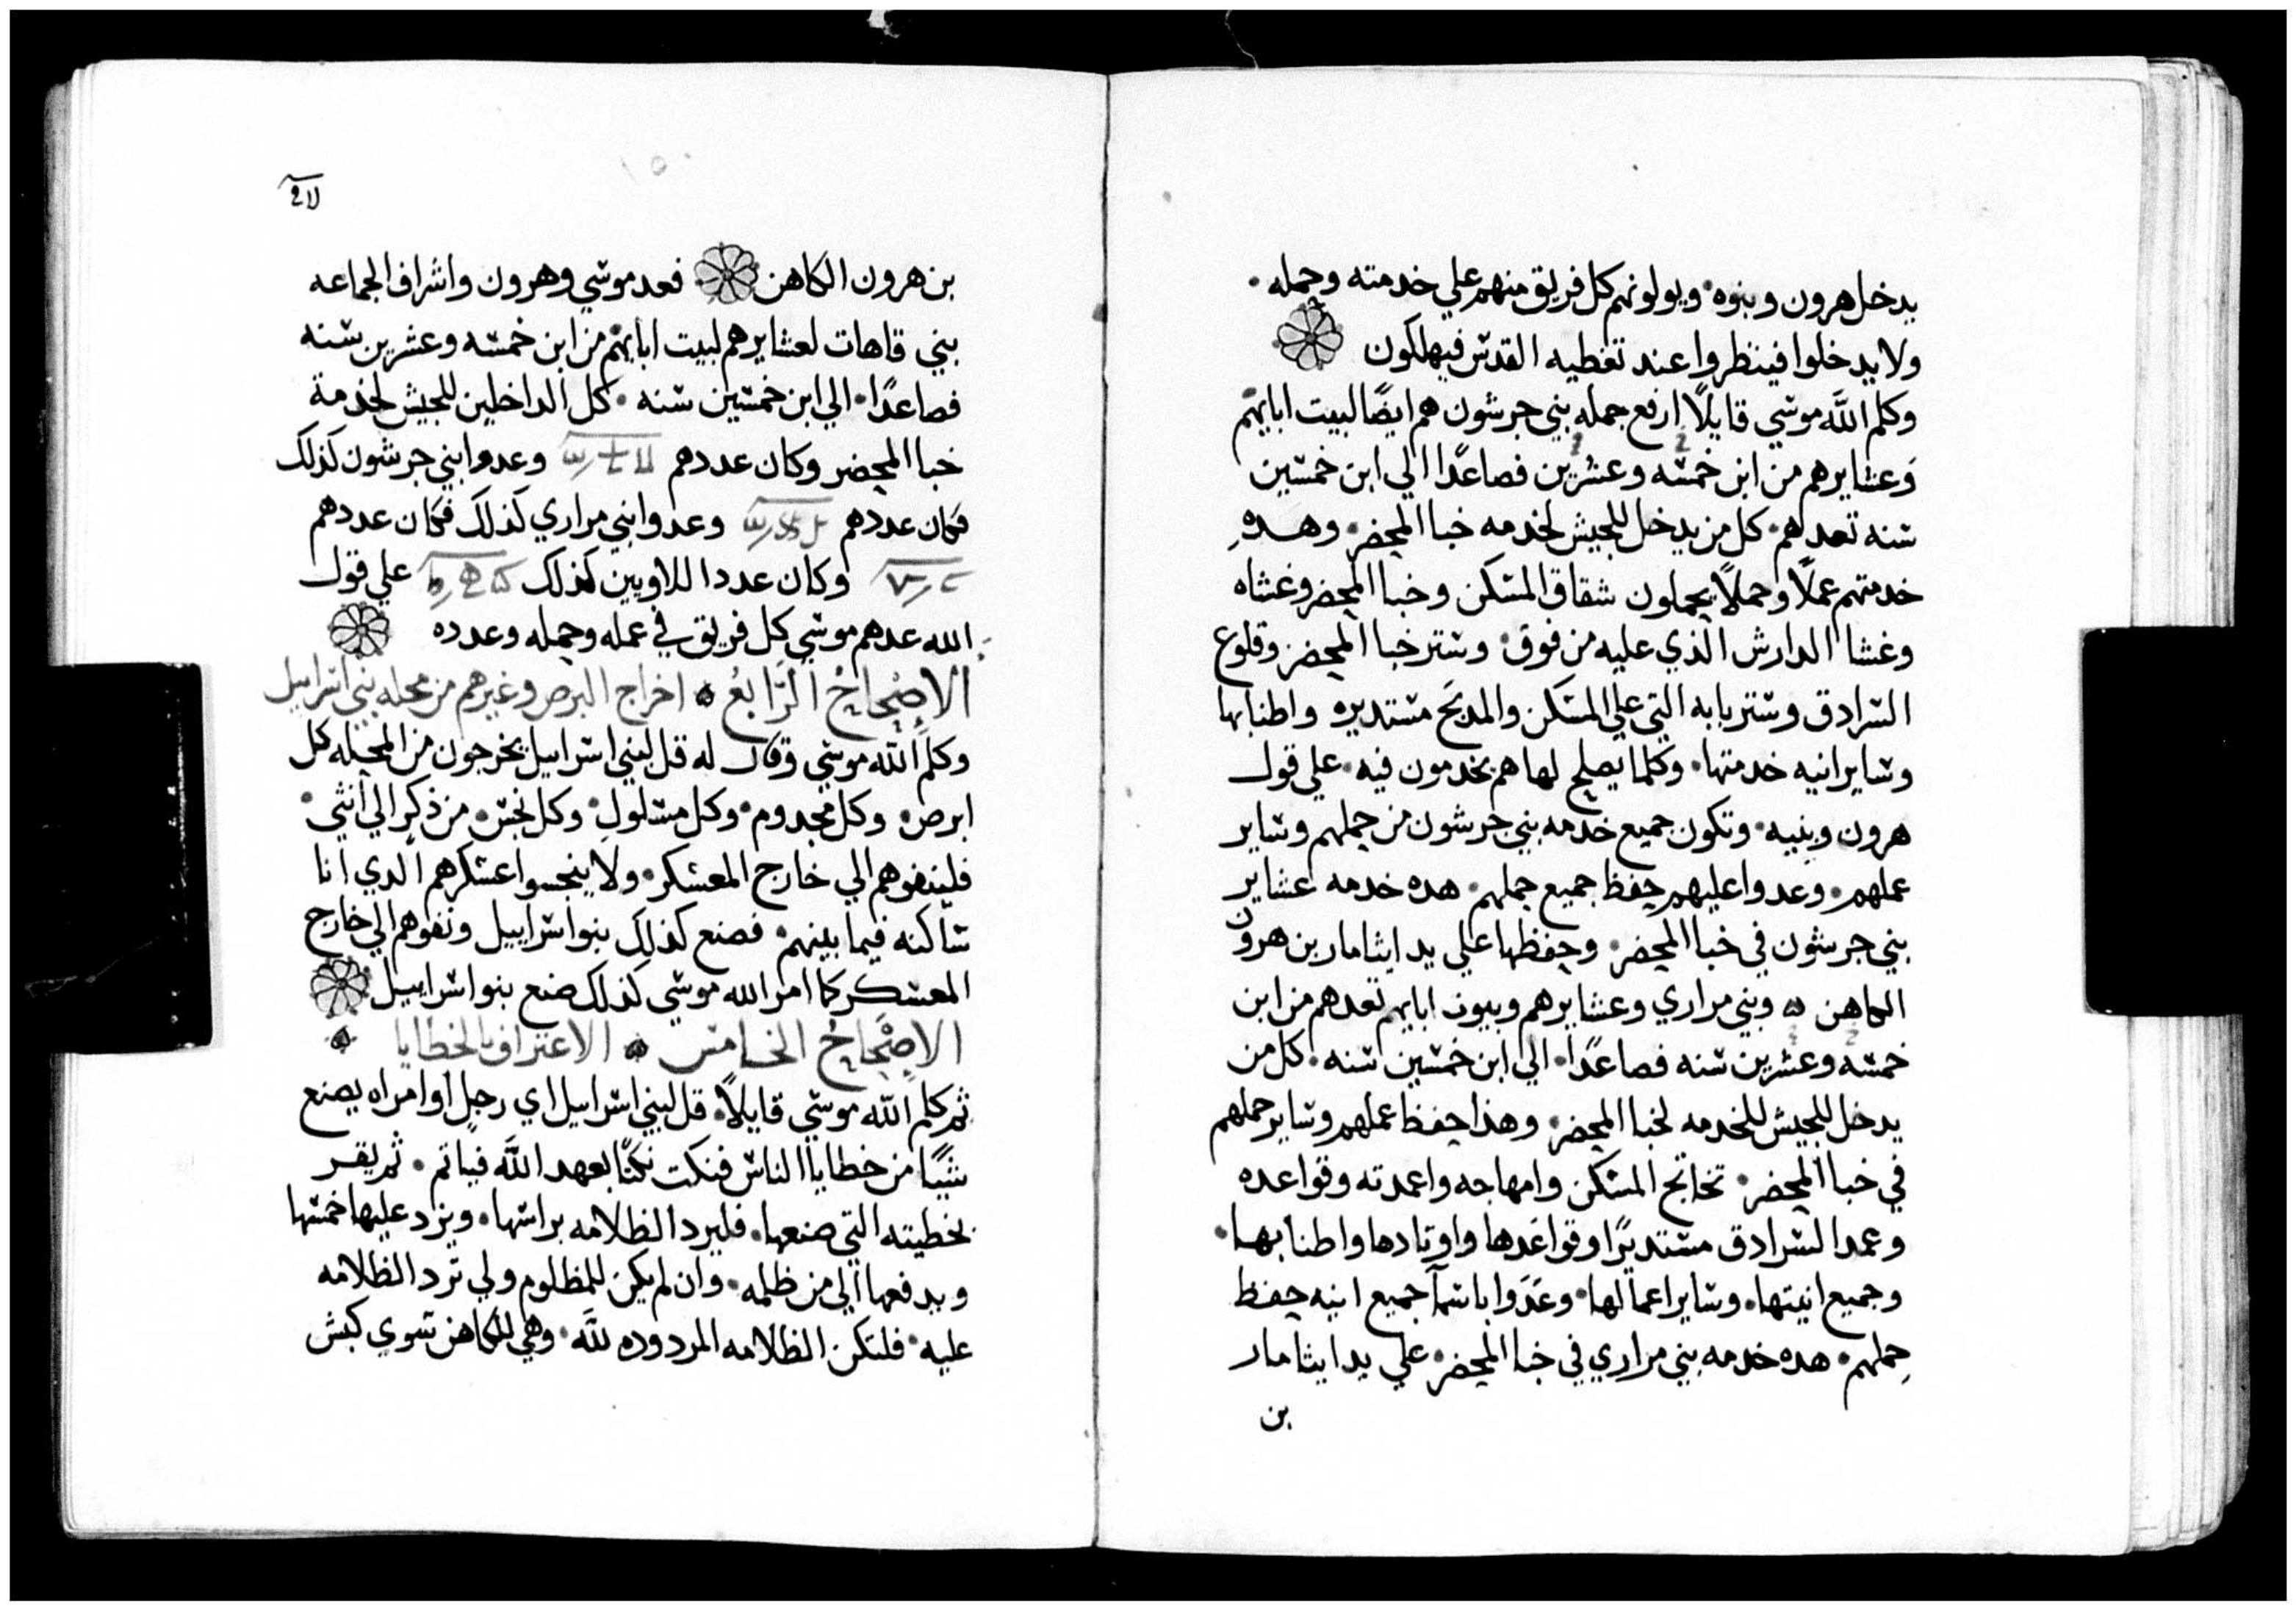 يدخل هرون وبنوه · ويولونهم كل فريق منهم علي خدمته وحمله ·
ولا يدخلوا فينظروا عند تغطيه القدس فيهلكون
وكلم اللَّه موسي قايلاً ارفع جمله بني جرشون هم ايضًا لبيت ابايهم
وعشايرهم من ابن خمسه وعشرين فصاعدًا الي ابن خمسين
سنه تعدهم · كل من يدخل للجيش لخدمه خبا المحضر · وهده
خدمتهم عملاً وحملاً يحملون شقاق المسكن وخبا المحضر وغشاه
وغشا الدارش الذي عليه من فوق · وستر خبا المحضر وقلوع
السرادق وستر بابه التي علي المسكن والمدبح مستديره واطنابها
وساير انيه خدمتها · وكلما يصلح لها هم يخدمون فيه · علي قول
هرون وبنيه · وتكون جميع خدمه بني جرشون من حملهم وساير
عملهم · وعدوا عليهم حفظ جميع حملهم · هده خدمه عشاير
بني جرشون في خبا المحضر · وحفظها علي يد ايثامار بن هرون
الكاهن · وبني مراري وعشايرهم وبيوت ابايهم تعدهم من ابن
خمسه وعشرين سنه فصاعدًا · الي ابن خمسين سنه · كل من
يدخل للجيش للخدمه لخبا المحضر · وهذا حفظ عملهم وساير حملهم
في خبا المحضر · تخاتج المسكن وامهاجه واعمدته وقواعده
وعمد السرادق مستديرًا وقواعدها واوتادها واطنابها ·
وجميع انيتها · وساير اعمالها · وعدوا باسمآ جميع انيه حفظ
حملهم · هده خدمه بني مراري في خبا المحضر · علي يد ايثامار
بن
بن هرون الكاهن فعد موسي وهرون واشراف الجماعه
بني قاهات لعشايرهم لبيت ابايهم من ابن خمسه وعشرين سنه
فصاعدًا · الي ابن خمسين سنه · كل الداخلين للجيش لخدمة
خبا المحضر وكان عددهم وعدوا بني جرشون كذلك
فكان عددهم وعدوا بني مراري كذلك فكان عددهم
وكان عدد اللاويين كذلك علي قول
الله عدهم موسي كل فريق في عمله وحمله وعدده
الاصْحاحُ الرَّابعُ · اخراج البرص وغيرهم من محله بني اسراييل
وكلم الله موسي وقال له قل لبني اسراييل يخرجون من المحله كل
ابرص · وكل مجدوم · وكل مسلول · وكل نجس · من ذكر الي انثي ·
فلينفوهم الي خارج المعسكر · ولا ينجسوا عسكرهم الدي انا
ساكنه فيما بينهم · فصنع كذلك بنوا سراييل ونفوهم الي خارج
المعسكر كما امر الله موسي كذلك صنع بنوا سراييل
الاصْحاحُ الخامس · الاعتراف بالخطايا ·
ثم كلم اللَّه موسي قايلاً · قل لبني اسراييل اي رجل او امراه يصنع
شيًا من خطايا الناس فنكت نكتًا بعهد اللَّه فياتم · ثم يقر
بخطيته التي صنعها · فليرد الظلامه براسها · ويزاد عليها خمسها
ويدفعها الي من ظلمه · وان لم يكن للمظلوم ولي ترد الظلامه
عليه · فلتكن الظلامه المردوده للَّه · وهي للكاهن سوي كبش